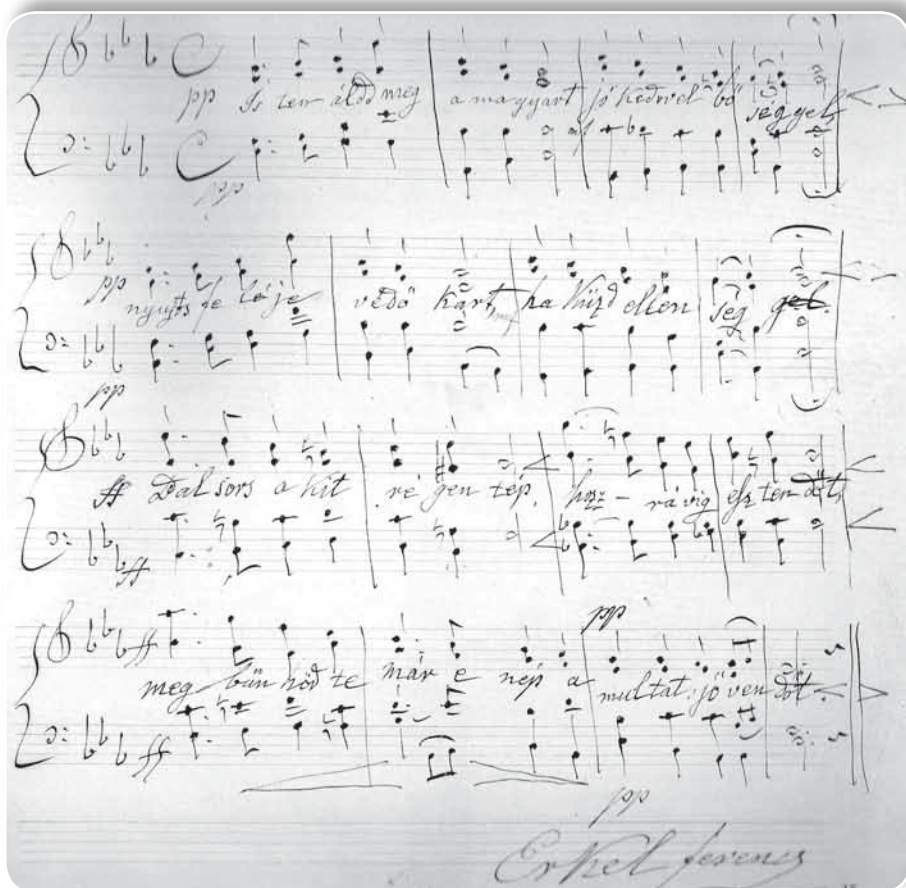 pp Is ten áldd meg a magyart mf jó kedvvel bő séggel,
pp
pp nyujts fe lé je védő kart, mf ha küzd ellen ség gel.
pp
ff Bal sors a kit ré gen tép, hozz - rá víg esz ten dőt,
ff
pp
ff meg bűn hőd te már e nép a multat jö ven dőt
ff
pp
Erkel ferencz